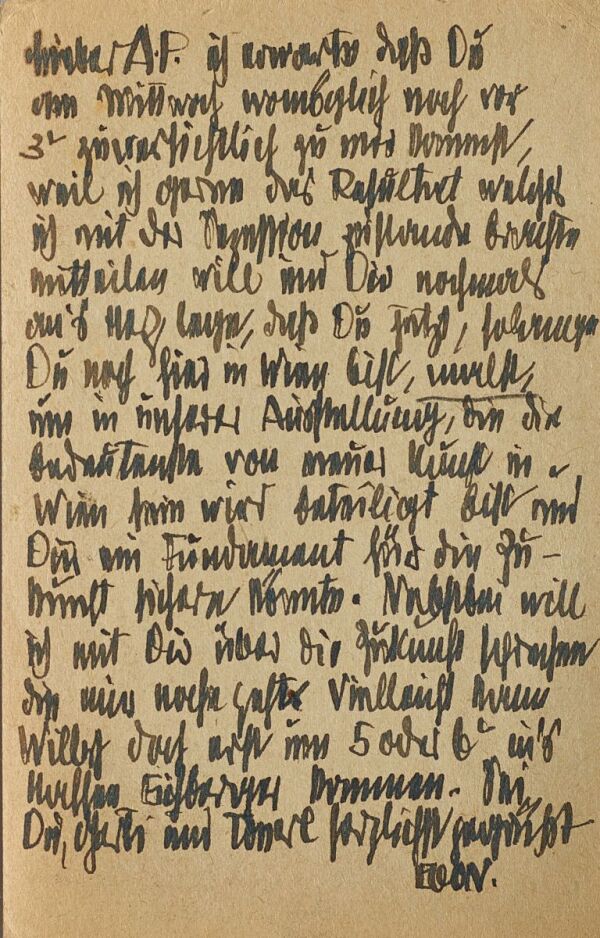 Lieber A.P. ich erwarte daß Du
am Mittwoch womöglich noch vor
3ʰ zuversichtlich zu mir kommst,
weil ich gerne das Resultat welches
ich mit der Sezession zustande brachte
mitteilen will und Dir nochmals
an's Herz lege, daß Du jetzt, solange
Du noch hier in Wien bist, malst,
um in unserer Ausstellung, die die
bedeutenste von neuer Kunst in
Wien sein wird beteiligt bist und
Du ein Fundament für die Zu-
kunft sichern könnte. Nebstbei will
ich mit Dir über die Zukunft sprechen
die mir nahe geht. Vielleicht kann
Willy doch erst um 5 oder 6ʰ in's
Kaffee Eichberger kommen. Sei
Du, Gerti und herzlichst gegrüßt
EGON.